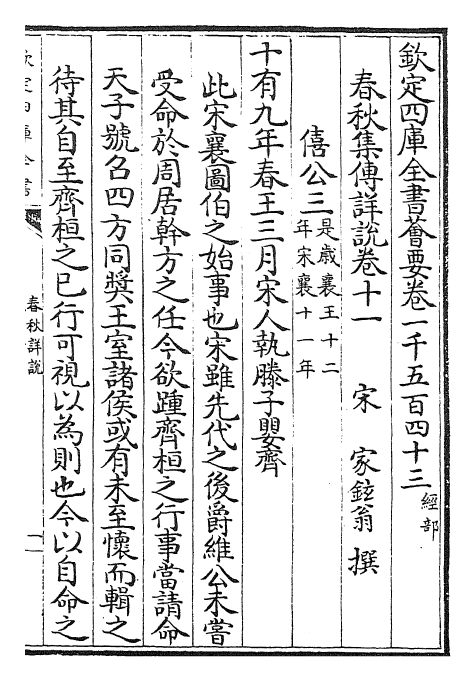 欽定四庫全書薈要卷一千五百四十三 經部
春秋集傳詳說卷十一 宋 家鉉翁 撰
僖公三 是歲襄王十二年宋襄十一年
十有九年春王三月宋人執滕子嬰齊
此宋襄圖伯之始事也宋雖先代之後爵維公未嘗
受命於周居幹方之任今欲踵齊桓之行事當請命
天子號召四方同奬王室諸侯或有未至懷而輯之
待其自至齊桓之已行可視以為則也今以自命之
欽定四庫全書
春秋詳說
一